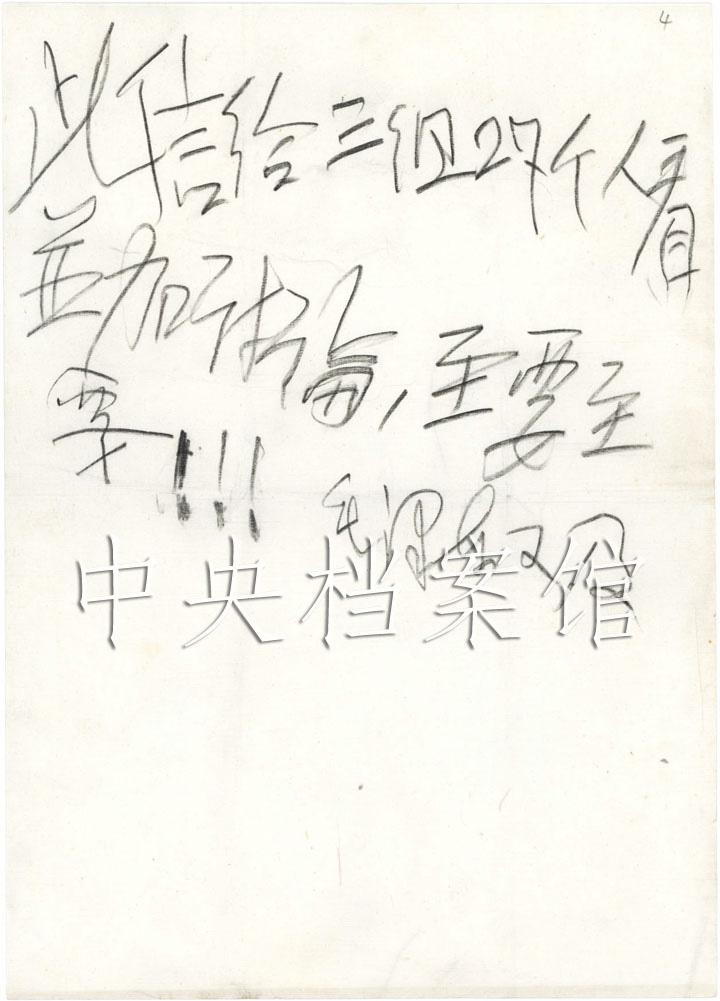 4
此信给三组27个人看
並加以讨论,至要至
要!!!
毛泽东又及
中央档案馆